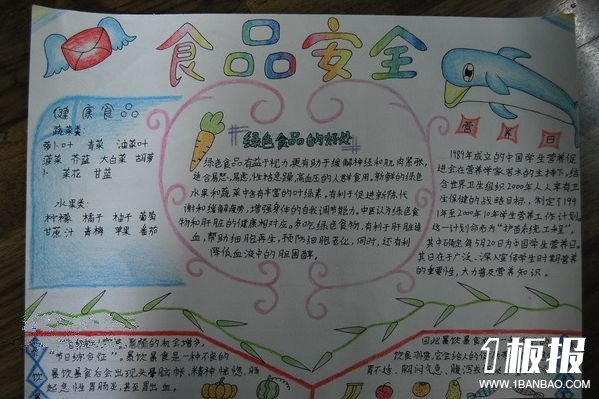 食品安全
健康食品
蔬菜类:
萝卜叶 青菜 油菜叶
菠菜 芥蓝 大白菜 胡萝
卜 菜花 甘蓝
水果类:
柠檬 橘子 柚子 葡萄
甘蔗汁 青梅 苹果 番茄
绿色食品的好处
绿色食品有益于视力,更有助于缓解神经和肌肉紧张,
适合易怒、易虑、性格急躁、高血压的人群食用。新鲜的绿色
水果和蔬菜中含有丰富的叶绿素,有利于促进新陈代
谢和缓解疲劳,增强身体的自我调节能力。中医认为绿色食
物和肝脏的健康相对应。多吃绿色食物,有利于肝脏造
血,帮助细胞再生,预防细胞老化,同时,还有利
降低血液中的胆固醇。
营养日
1989年成立的中国学生营养促
进会在营养学家若木的主持下,结
合世界卫生组织2000年人人享有卫
生保健的战略目标,制定了199
1年至2000年10年学生营养工作计划
这一计划命名为“护苗系统工程”。
其中确定每5月20日为中国学生营养日。
其目在于广泛、深入宣传学生时期营养
的重要性,大力普及营养知识。
“节日综合症”。暴饮暴食是一种不良的
暴饮暴食后会出现头晕脑帐、精神恍惚、肠
起急性胃肠炎,甚至胃出血
因此暴饮暴食
饮食习惯,它会给人的
胃不适、胸闷气急、腹泻
板报
WWW.1BANBAO.COM